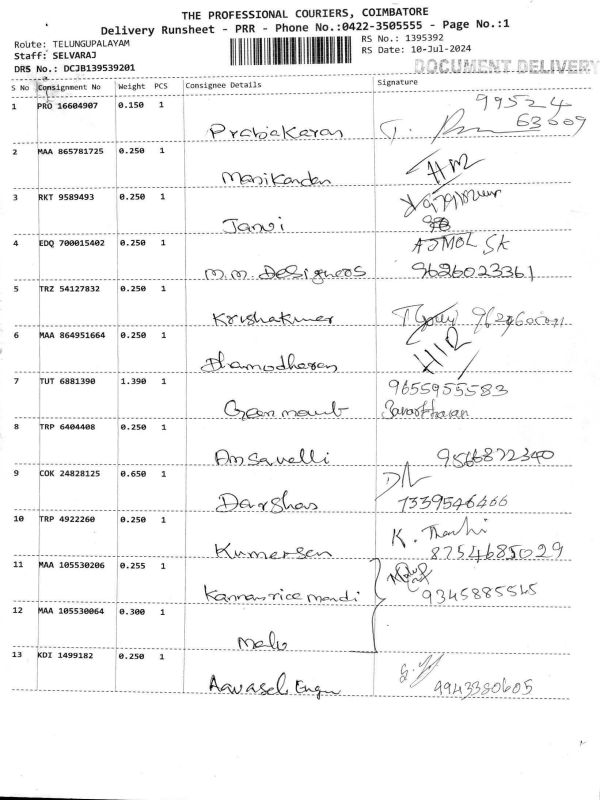 THE PROFESSIONAL COURIERS, COIMBATORE
Delivery Runsheet - PRR - Phone No.:0422-3505555 - Page No.:1
Route: TELUNGUPALAYAM
RS No.: 1395392
Staff: SELVARAJ
RS Date: 10-Jul-2024
DRS No.: DCJB139539201
DOCUMENT DELIVERY
S No Consignment No Weight PCS Consignee Details Signature
1 PRO 16604907 0.150 1
99524
63009
Prabakaran
2 MAA 865781725 0.250 1
Manikandan
3 RKT 9589493 0.250 1
Janvi
4 EDQ 700015402 0.250 1
AJMOL SK
M.M. Designers 9626023361
5 TRZ 54127832 0.250 1
Krishakumer
6 MAA 864951664 0.250 1
Dhamodharan
7 TUT 6881390 1.390 1
9655955583
8 TRP 6404408 0.250 1
Ansavelli 9566872340
9 COK 24828125 0.650 1
Darshas 7339546466
10 TRP 4922260 0.250 1
K.
Kumersen 8754685029
11 MAA 105530206 0.255 1
Kannan rice mandi 9345885545
12 MAA 105530064 0.300 1
Malu
13 KDI 1499182 0.250 1
Aavasel Engu 9943380605